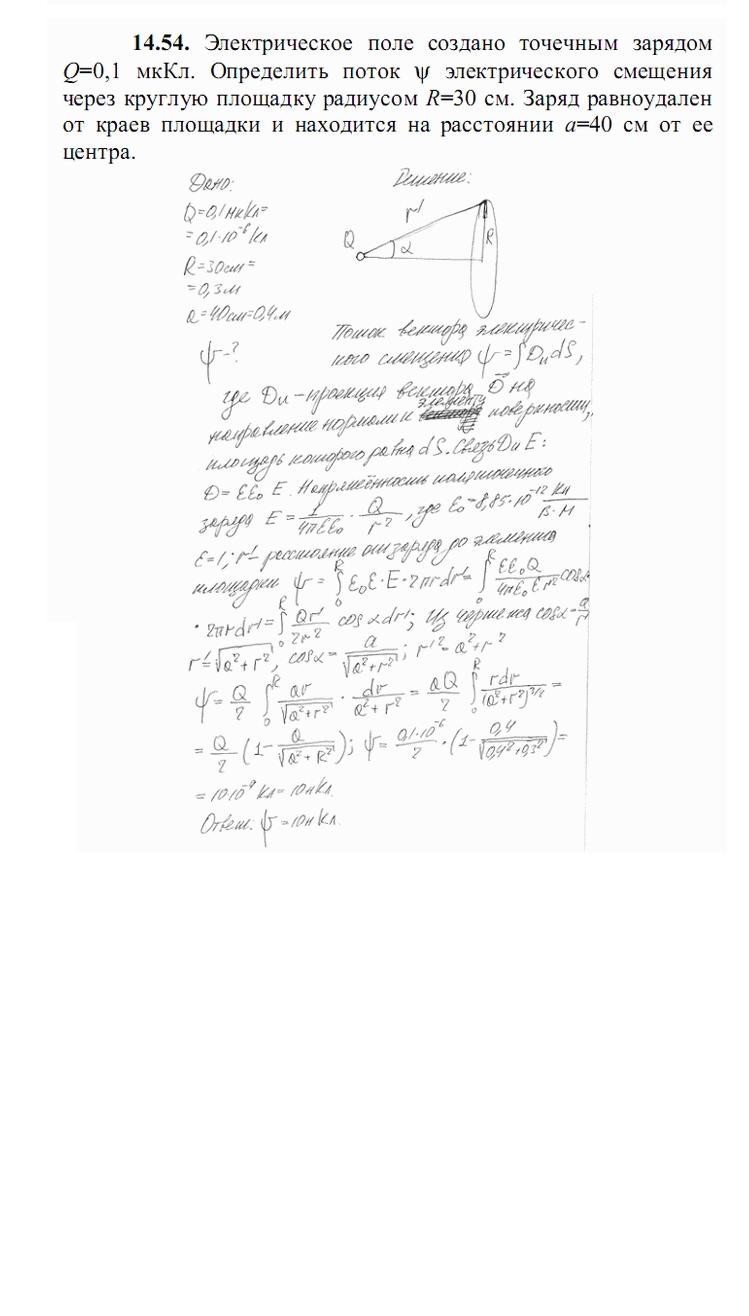 14.54. Электрическое поле создано точечным зарядом
Q=0,1 мкКл. Определить поток ψ электрического смещения
через круглую площадку радиусом R=30 см. Заряд равноудален
от краев площадки и находится на расстоянии a=40 см от ее
центра.
Дано:
Q=0,1мкКл=
=0,1·10⁻⁶Кл
R=30см=
=0,3м
a=40см=0,4м
ψ-?
Решение:
r'
Q
α
R
Поток вектора электричес-
кого смещения ψ=∫DₙdS,
где Dₙ-проекция вектора D⃗ на
направление нормали к элементу поверхности,
площадь которого равна dS. Связь D и E:
D=εε₀E. Напряжённость поля точечного
заряда E=1/(4πεε₀)·Q/r², где ε₀=8,85·10⁻¹² Кл/(В·м)
ε=1; r'- расстояние от заряда до элемента
площадки ψ=∫₀ᴿ ε₀ε·E·2πrdr'=∫₀ᴿ εε₀Q/(4πε₀εr²) cosα
·2πrdr'=∫₀ᴿ Qr'/(2r²) cosαdr'; Из чертежа cosα=a/r'
r'=√(a²+r²), cosα=a/√(a²+r²); r'²=a²+r²
ψ=Q/2 ∫₀ᴿ ar/√(a²+r²)·dr/(a²+r²)=aQ/2 ∫₀ᴿ rdr/(a²+r²)^(3/2)=
=Q/2 (1-a/√(a²+R²)); ψ=0,1·10⁻⁶/2·(1-0,4/√(0,4²+0,3²))=
=10·10⁻⁹Кл=10нКл.
Ответ: ψ=10нКл.